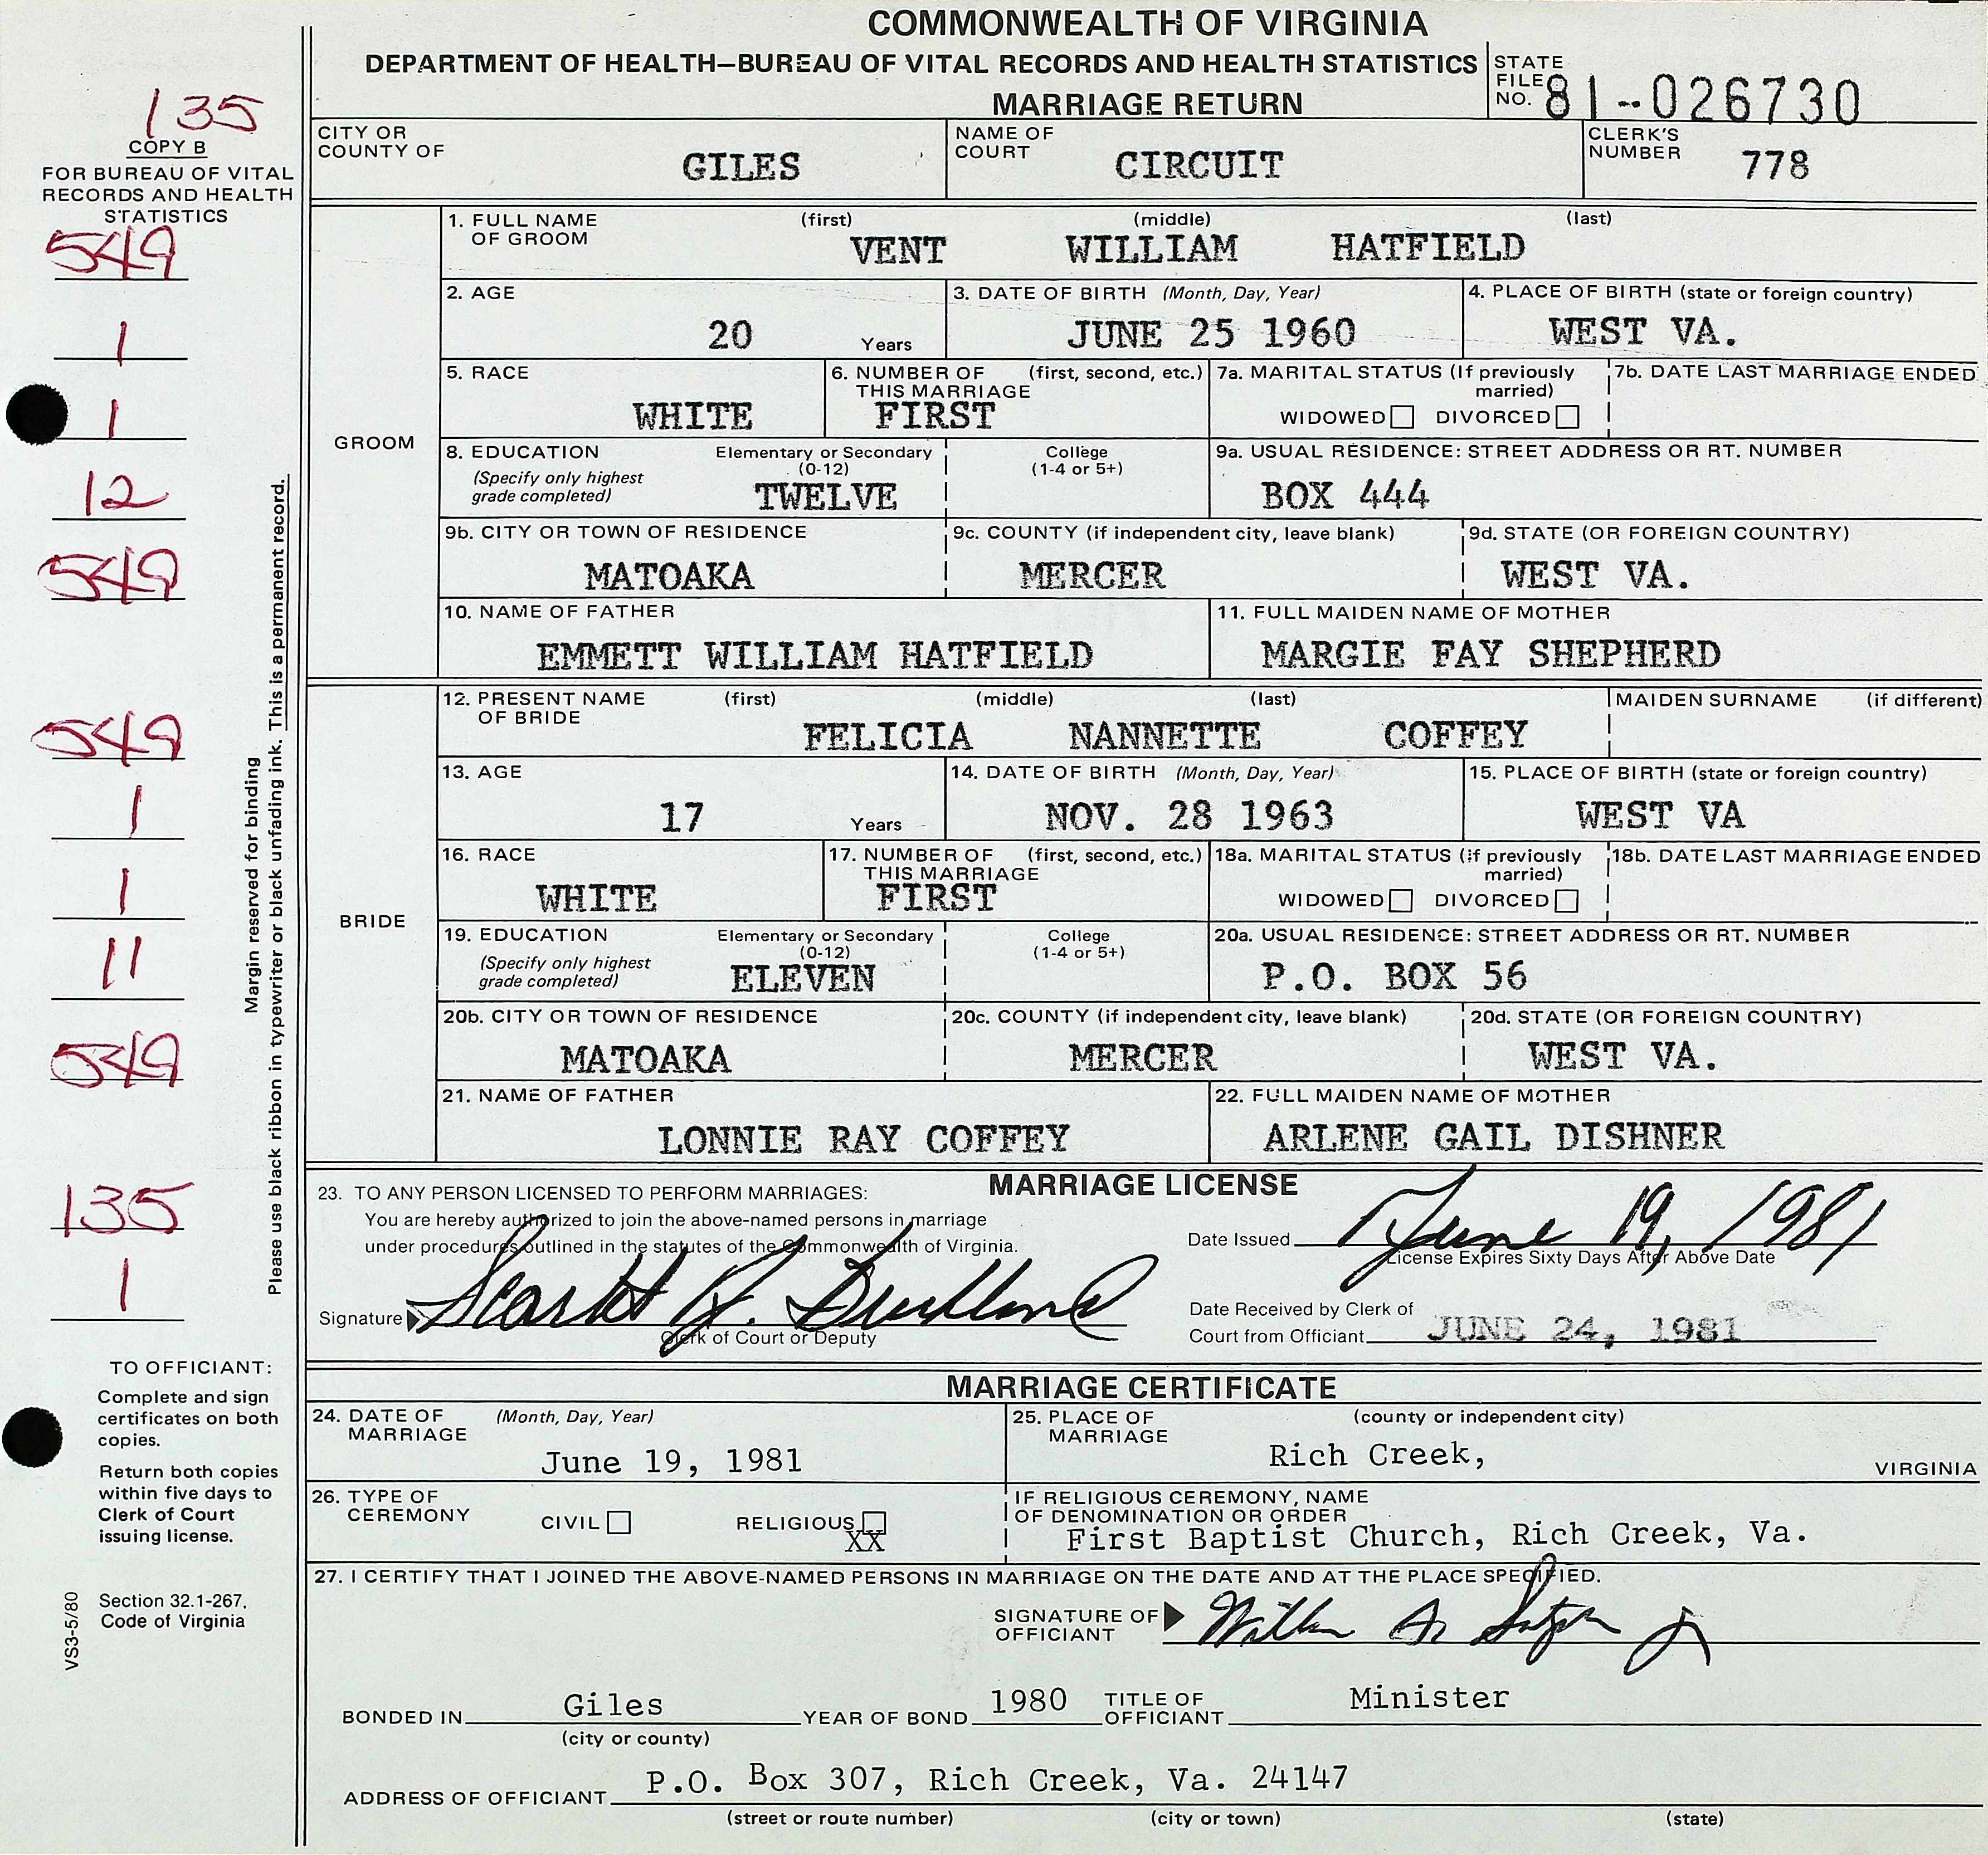 COMMONWEALTH OF VIRGINIA
DEPARTMENT OF HEALTH—BUREAU OF VITAL RECORDS AND HEALTH STATISTICS
MARRIAGE RETURN
STATE FILE NO. 81-026730
135
COPY B
FOR BUREAU OF VITAL
RECORDS AND HEALTH
STATISTICS
CITY OR COUNTY OF GILES
NAME OF COURT CIRCUIT
CLERK'S NUMBER 778
549
1
1
12
549
549
1
1
11
549
135
1
Margin reserved for binding
Please use black ribbon in typewriter or black unfading ink. This is a permanent record.
GROOM
1. FULL NAME OF GROOM (first) (middle) (last)
VENT WILLIAM HATFIELD
2. AGE 20 Years
3. DATE OF BIRTH (Month, Day, Year) JUNE 25 1960
4. PLACE OF BIRTH (state or foreign country) WEST VA.
5. RACE WHITE
6. NUMBER OF THIS MARRIAGE (first, second, etc.) FIRST
7a. MARITAL STATUS (If previously married) WIDOWED DIVORCED
7b. DATE LAST MARRIAGE ENDED
8. EDUCATION (Specify only highest grade completed) Elementary or Secondary (0-12) TWELVE
College (1-4 or 5+)
9a. USUAL RESIDENCE: STREET ADDRESS OR RT. NUMBER BOX 444
9b. CITY OR TOWN OF RESIDENCE MATOAKA
9c. COUNTY (if independent city, leave blank) MERCER
9d. STATE (OR FOREIGN COUNTRY) WEST VA.
10. NAME OF FATHER EMMETT WILLIAM HATFIELD
11. FULL MAIDEN NAME OF MOTHER MARGIE FAY SHEPHERD
BRIDE
12. PRESENT NAME OF BRIDE (first) (middle) (last) MAIDEN SURNAME (if different)
FELICIA NANNETTE COFFEY
13. AGE 17 Years
14. DATE OF BIRTH (Month, Day, Year) NOV. 28 1963
15. PLACE OF BIRTH (state or foreign country) WEST VA
16. RACE WHITE
17. NUMBER OF THIS MARRIAGE (first, second, etc.) FIRST
18a. MARITAL STATUS (if previously married) WIDOWED DIVORCED
18b. DATE LAST MARRIAGE ENDED
19. EDUCATION (Specify only highest grade completed) Elementary or Secondary (0-12) ELEVEN
College (1-4 or 5+)
20a. USUAL RESIDENCE: STREET ADDRESS OR RT. NUMBER P.O. BOX 56
20b. CITY OR TOWN OF RESIDENCE MATOAKA
20c. COUNTY (if independent city, leave blank) MERCER
20d. STATE (OR FOREIGN COUNTRY) WEST VA.
21. NAME OF FATHER LONNIE RAY COFFEY
22. FULL MAIDEN NAME OF MOTHER ARLENE GAIL DISHNER
MARRIAGE LICENSE
23. TO ANY PERSON LICENSED TO PERFORM MARRIAGES:
You are hereby authorized to join the above-named persons in marriage
under procedures outlined in the statutes of the Commonwealth of Virginia.
Date Issued June 19, 1981
License Expires Sixty Days After Above Date
Signature
Clerk of Court or Deputy
Date Received by Clerk of
Court from Officiant JUNE 24, 1981
TO OFFICIANT:
Complete and sign
certificates on both
copies.
Return both copies
within five days to
Clerk of Court
issuing license.
Section 32.1-267,
Code of Virginia
VS3-5/80
MARRIAGE CERTIFICATE
24. DATE OF MARRIAGE (Month, Day, Year) June 19, 1981
25. PLACE OF MARRIAGE (county or independent city) Rich Creek, VIRGINIA
26. TYPE OF CEREMONY CIVIL RELIGIOUS XX
IF RELIGIOUS CEREMONY, NAME
OF DENOMINATION OR ORDER
First Baptist Church, Rich Creek, Va.
27. I CERTIFY THAT I JOINED THE ABOVE-NAMED PERSONS IN MARRIAGE ON THE DATE AND AT THE PLACE SPECIFIED.
SIGNATURE OF OFFICIANT
BONDED IN Giles YEAR OF BOND 1980 TITLE OF OFFICIANT Minister
(city or county)
ADDRESS OF OFFICIANT P.O. Box 307, Rich Creek, Va. 24147
(street or route number) (city or town) (state)